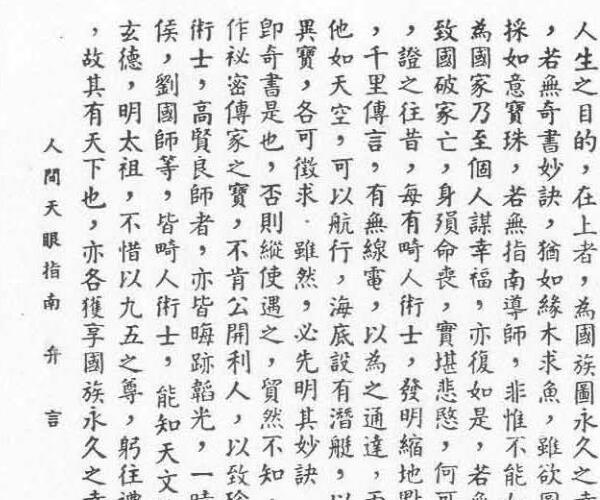 人生之目的，在上者，為國族圖永久之幸
，若無奇書妙訣，猶如緣木求魚，雖欲圖
採如意寶珠，若無指南導師，非惟不能
為國家乃至個人謀幸福，亦復如是，若無
致國破家亡，身殞命喪，實堪悲愍，何可
，證之往昔，每有畸人術士，發明縮地點
，千里傳言，有無線電，以為之通達，天
他如天空，可以航行，海底設有潛艇，以
異寶，各可徵求．雖然，必先明其妙訣
卽奇書是也，否則縱使遇之，貿然不知，
作祕密傳家之寶，不肯公開利人，以致
術士，高賢良師者，亦皆晦跡韜光，一時
侯，劉國師等，皆畸人術士，能知天文
玄德，明太祖，不惜以九五之尊，躬往禮
，故其有天下也，亦各獲享國族永久之幸
人間天眼指南 弁言